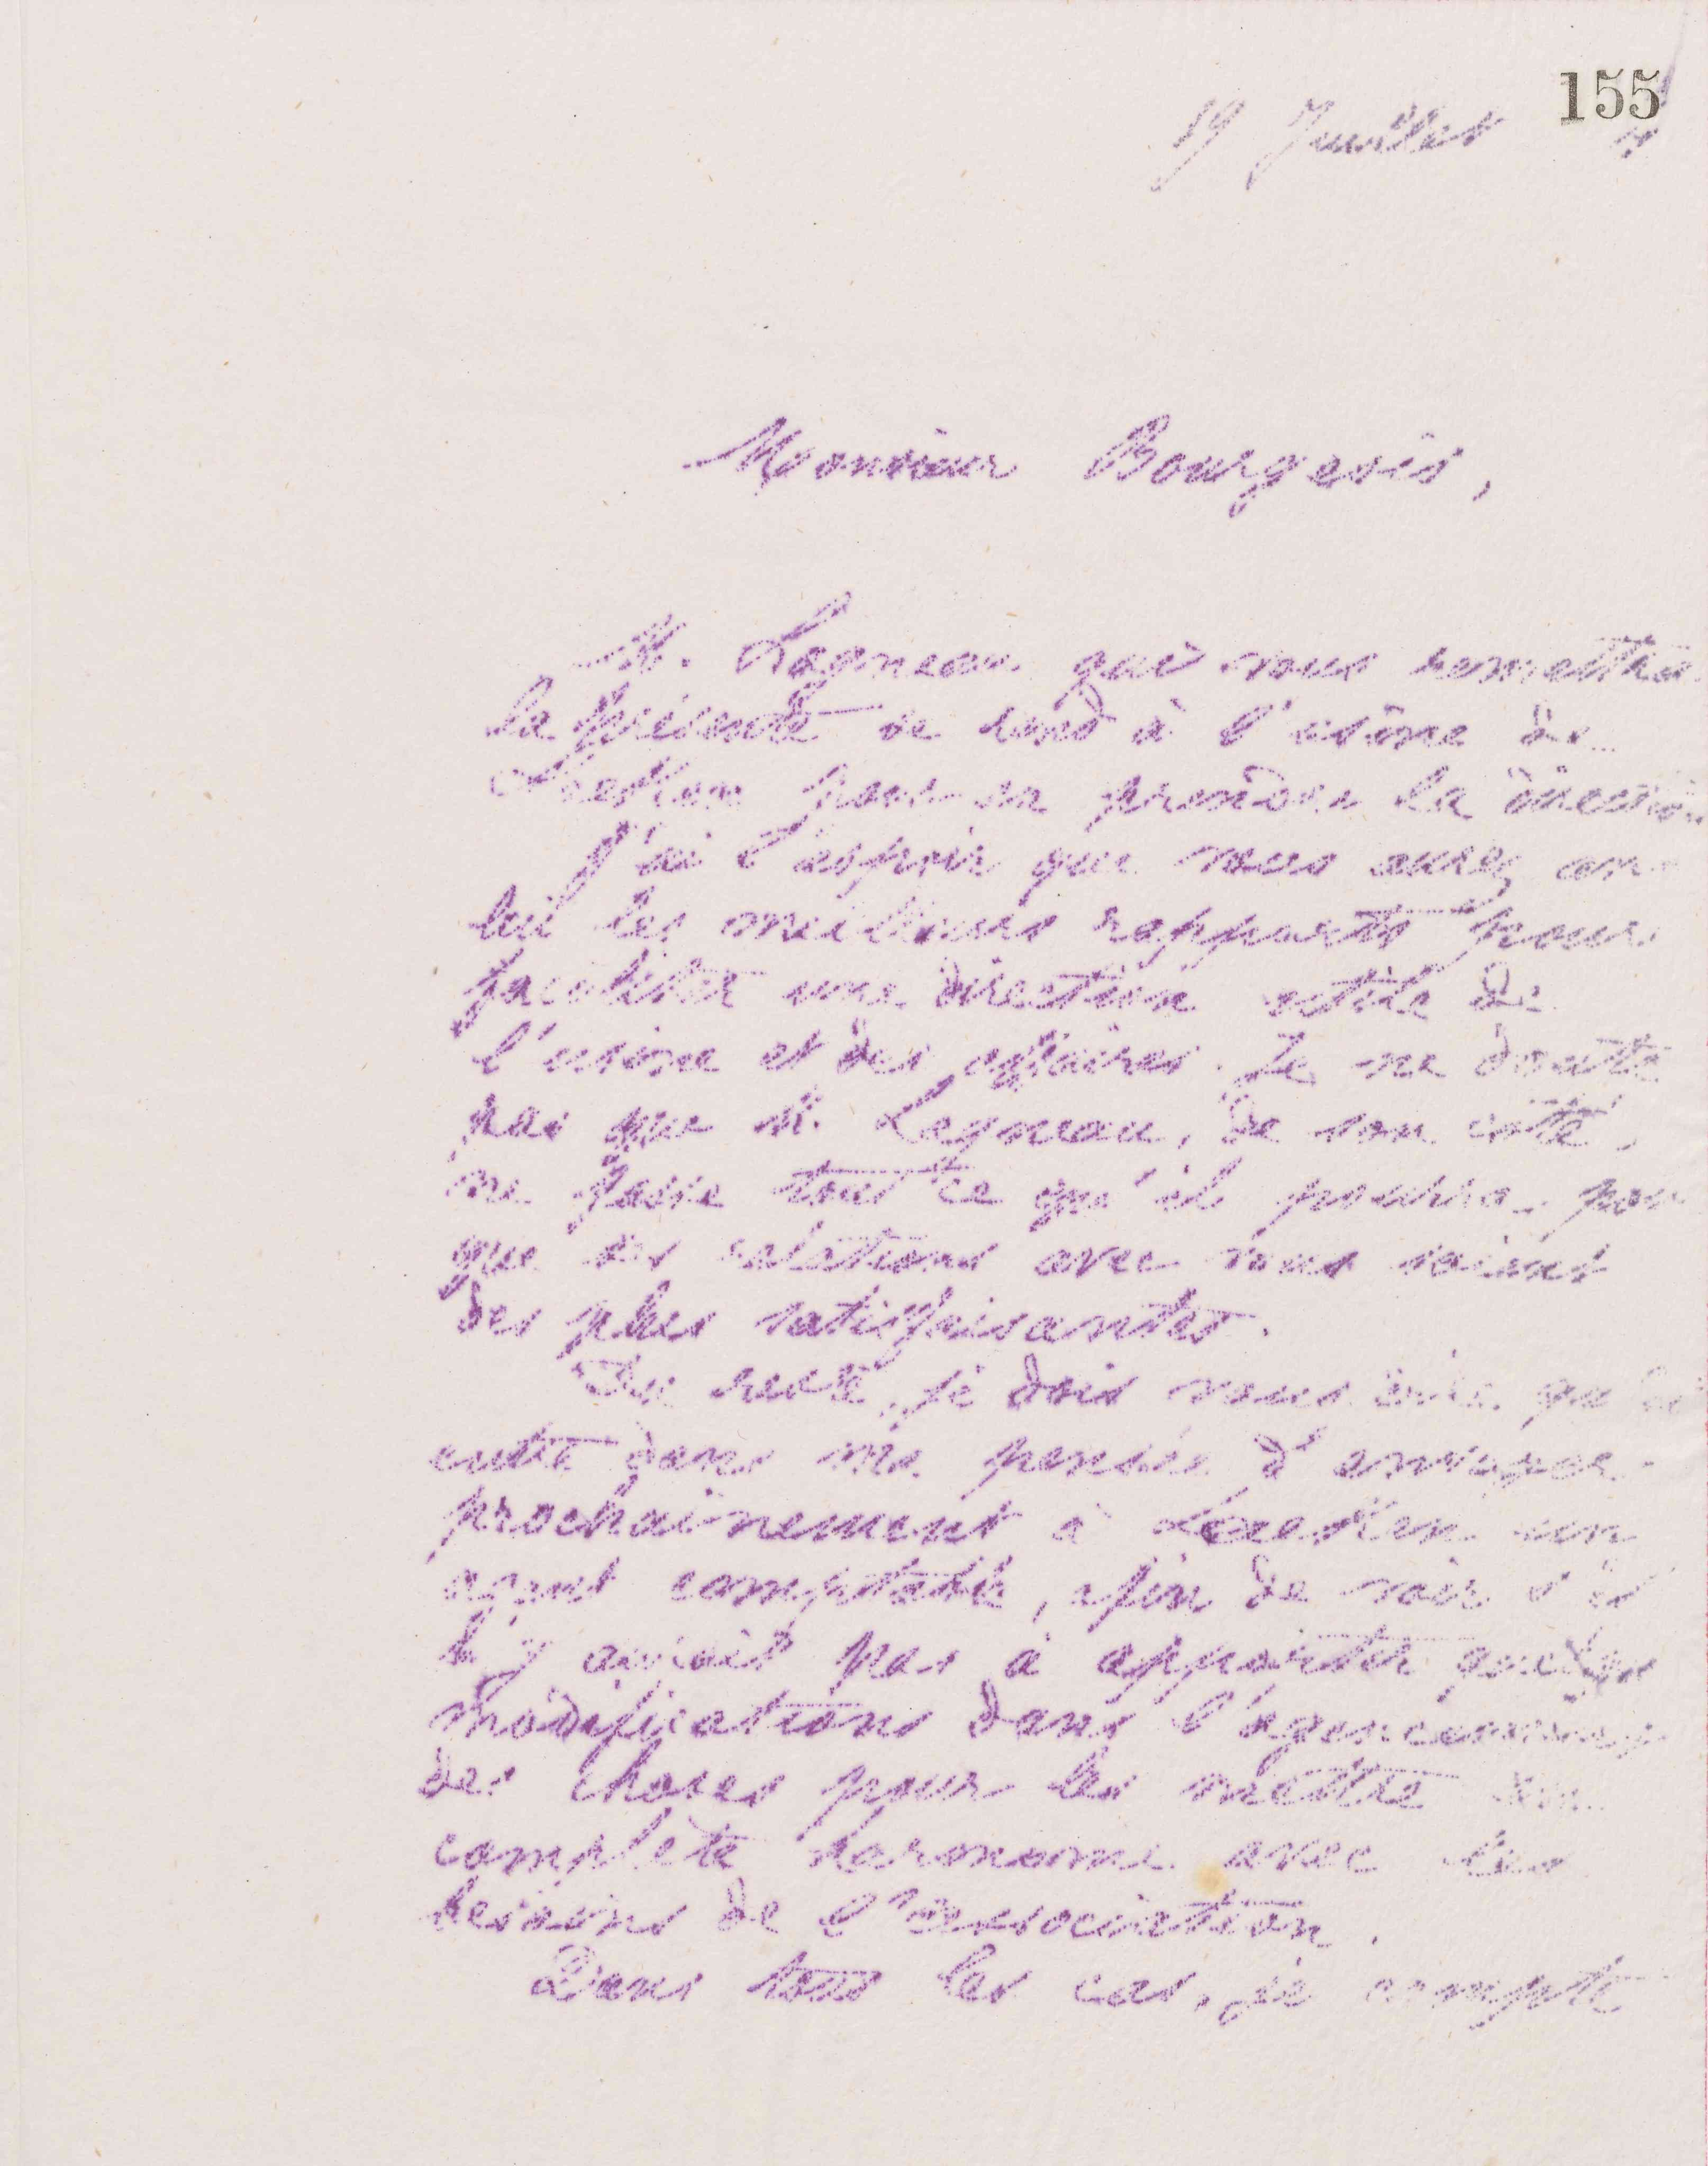 155
19 Juillet
Monsieur Bourgeois,
M. Lagneau qui vous remettra
la présente se rend à l'usine de
pour en prendre la direction
J'ai l'espoir que vous aurez en
lui les meilleurs rapports pour
faciliter une direction utile de
l'usine et des affaires. Je ne doute
pas que M. Lagneau, de son côté,
ne fasse tout ce qu'il pourra pour
que ses relations avec vous soient
des plus satisfaisantes.
Du reste, je dois vous dire que
entre dans ma pensée d'envoyer
prochainement à un
agent comptable, afin de voir s'il
n'y aurait pas à apporter quelques
modifications dans l'agencement
des choses pour les mettre en
complète harmonie avec les
besoins de l'association.
Dans tous les cas, je compte